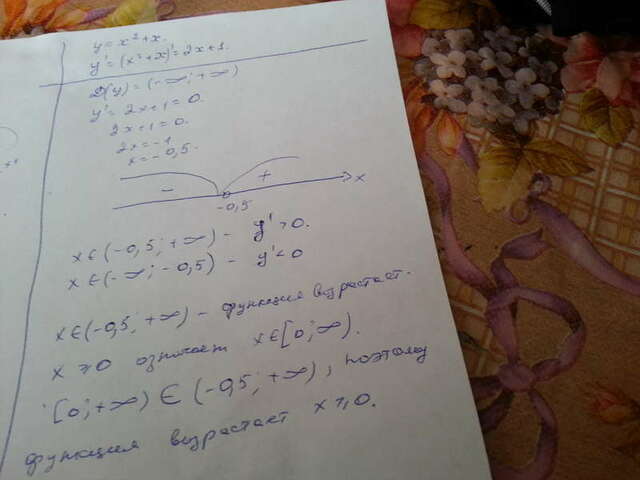 y = x² + x.
y' = (x² + x)' = 2x + 1.
D(y) = (-∞; +∞)
y' = 2x + 1 = 0.
2x + 1 = 0.
2x = -1
x = -0,5.
- + x
-0,5
x ∈ (-0,5; +∞) - y' > 0.
x ∈ (-∞; -0,5) - y' < 0
x ∈ (-0,5; +∞) - функция возрастает.
x ≥ 0 означает x ∈ [0; ∞).
[0; +∞) ∈ (-0,5; +∞), поэтому
функция возрастает x ≥ 0.